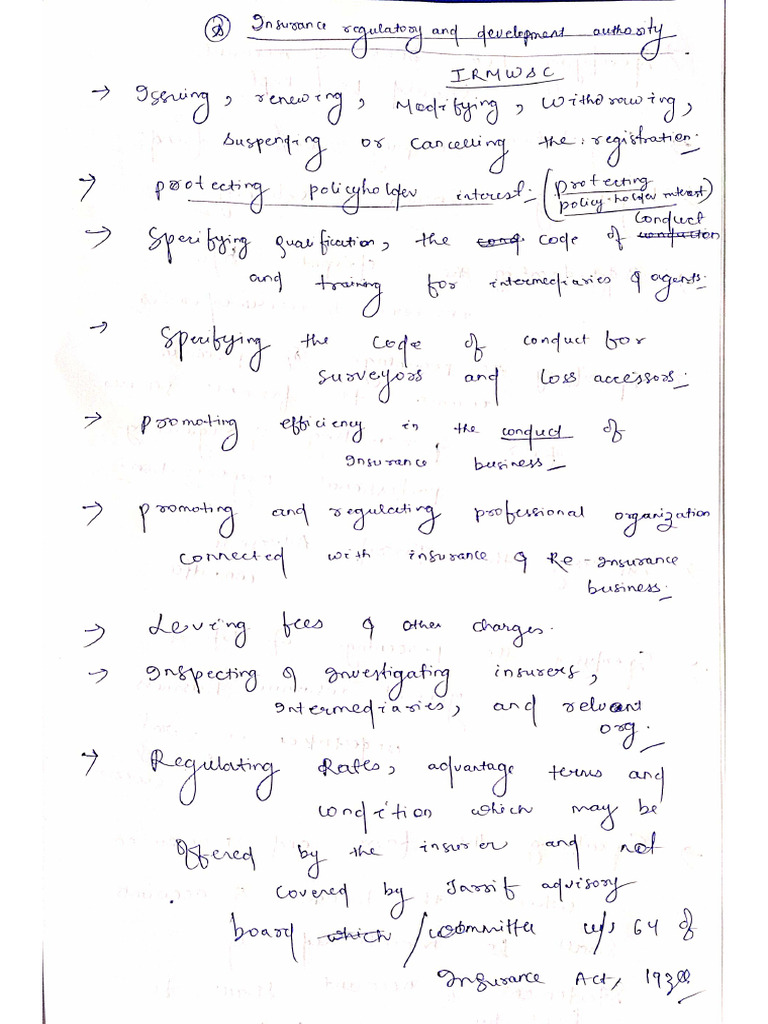 ② Insurance regulatory and development authority
IRMWSC
→ Issuing, renewing, Modifying, Withdrowing,
suspending or cancelling the registration.
→ protecting policyholder interest. (protecting
policy-holder interest)
Conduct
→ Specifying qualification, the cond. code of conduction
and training for intermediaries & agents.
→ Specifying the code of conduct for
surveyors and loss accessors.
→ promoting efficiency in the conduct of
Insurance business.
→ promoting and regulating professional organization
connected with insurance & Re-Insurance
business.
→ Leving fees & other charges.
→ Inspecting & Investigating insurers,
Intermediaries, and relevant
org.
→ Regulating Rates, advantage terms and
condition which may be
offered by the insurer and not
covered by Tarrif advisory
board which / committe u/s 64 of
Insurance Act, 1938.